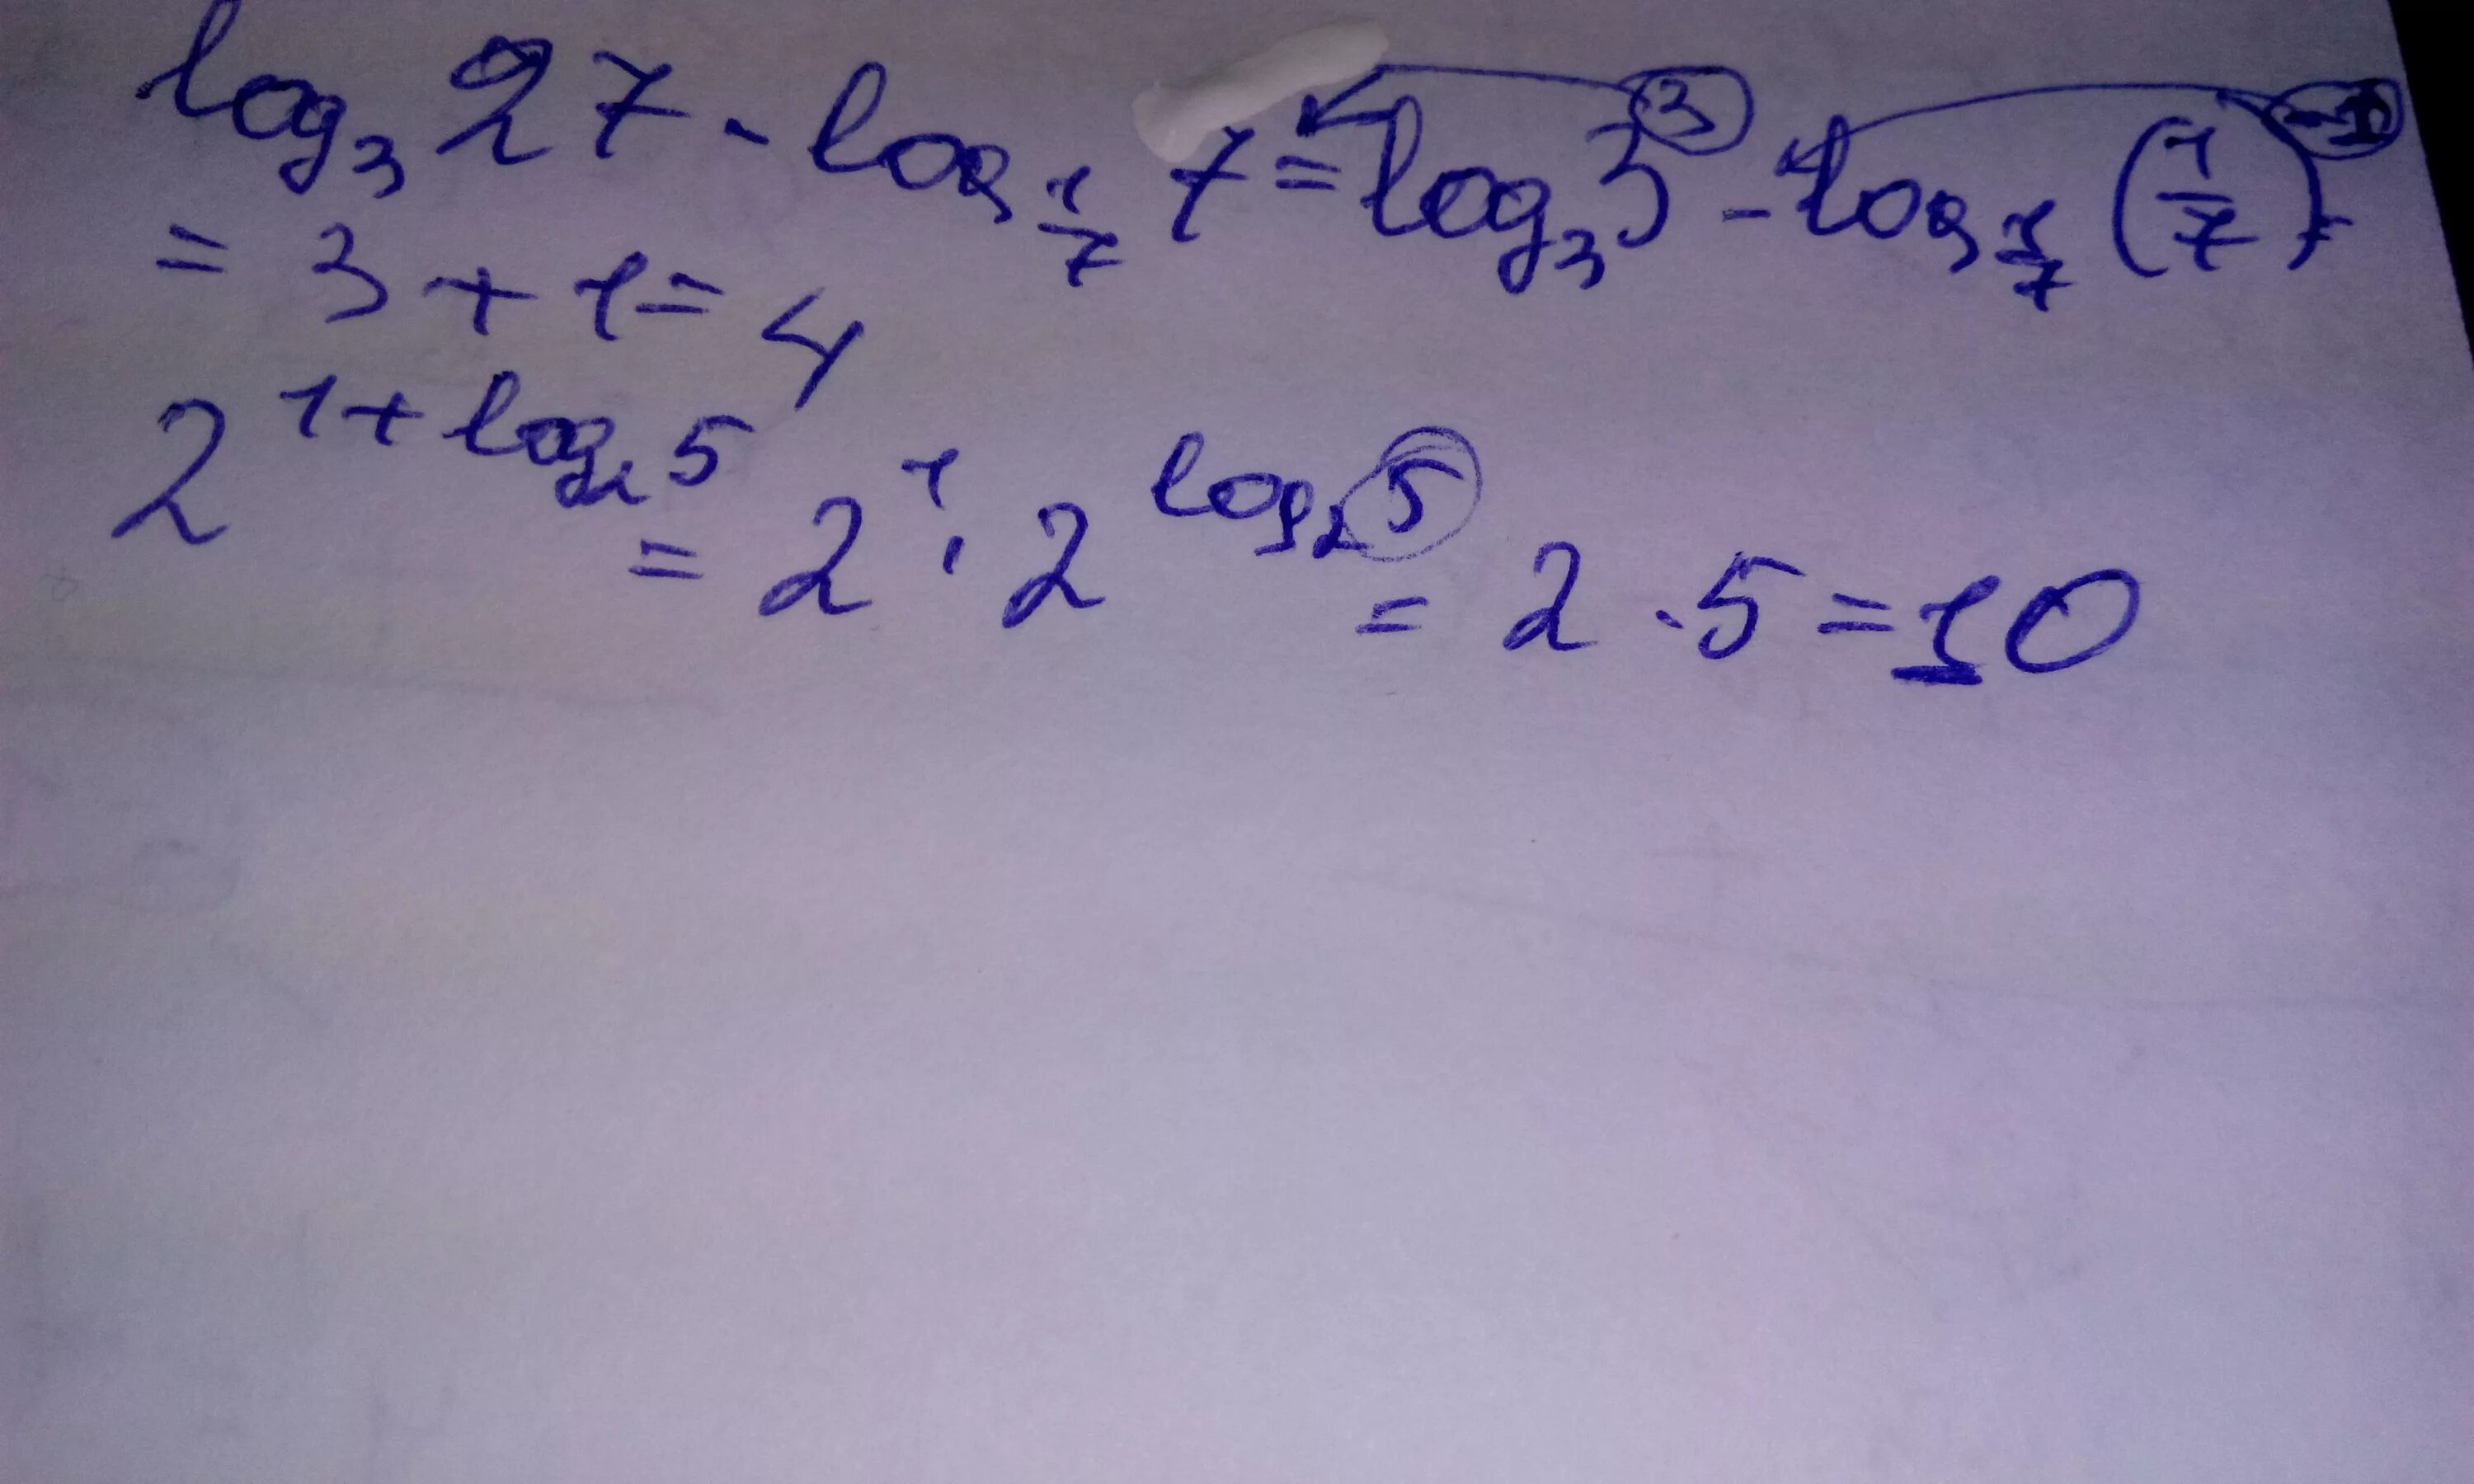 log₃ 27 - log_{1/7} 7 = log₃ 3³ - log_{1/7} (1/7)⁻¹ =
= 3 + 1 = 4
2^{1 + log₂ 5} = 2¹ · 2^{log₂ 5} = 2 · 5 = 10